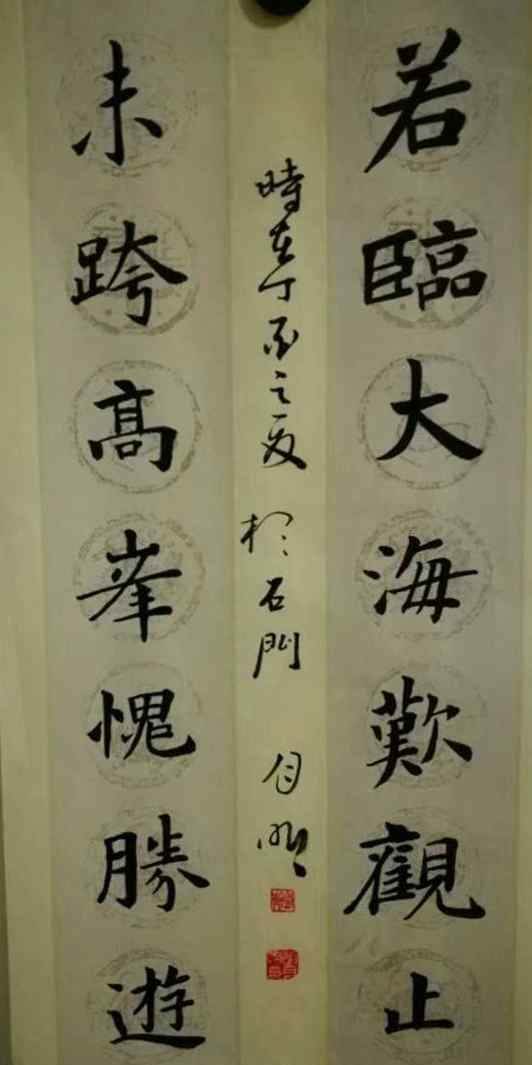 若臨大海歎觀止
時在丁酉之夏於石門 明
未跨高峯愧勝遊